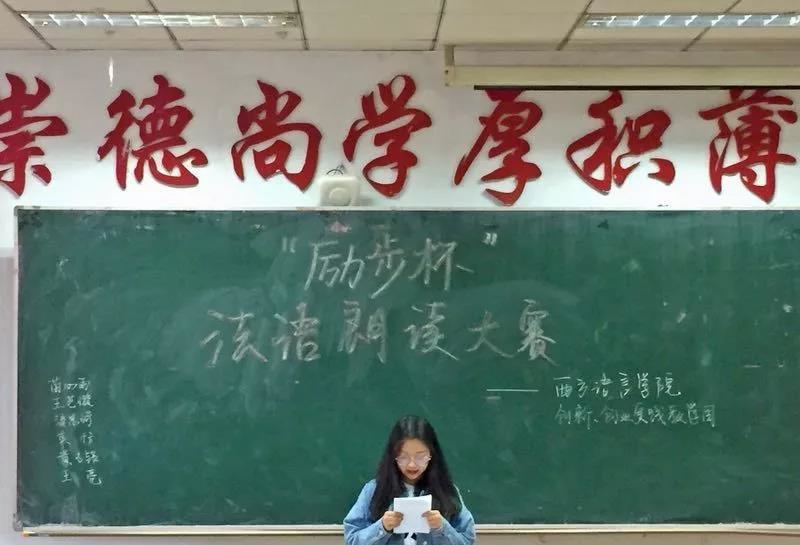 崇德尚学厚积薄
“励步杯”
法语朗读大赛
——西方语言学院
创新、创业实践教学团